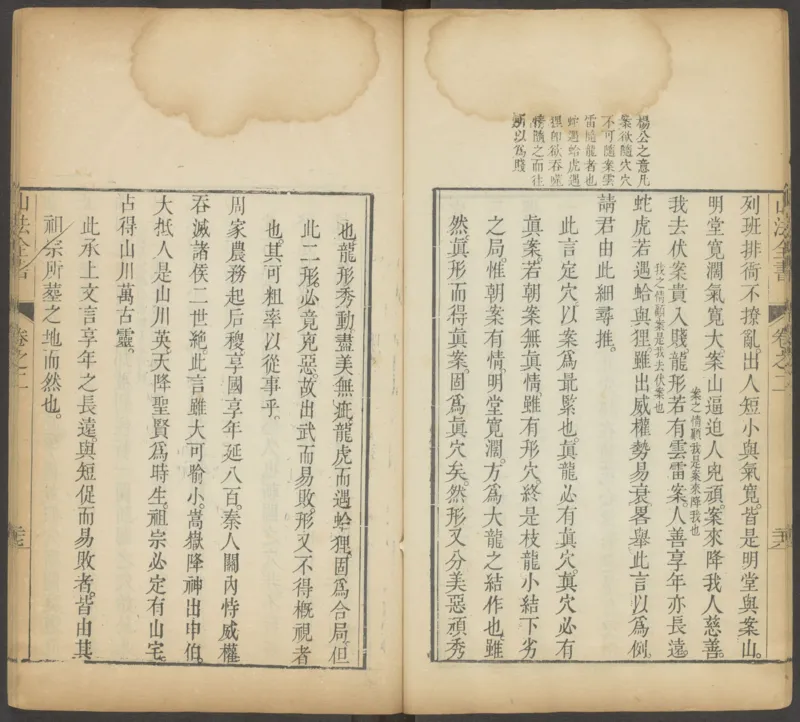 楊公之意凡
案欲隨穴穴
不可隨案雲
雷隨龍者也
蛇遇蛤虎遇
狸卽欲吞噬
情隨之而往
所以爲賤
列班排衙不撩亂。出人短小與氣寬。皆是明堂與案山。
明堂寬濶氣寬大。案山逼迫人兇頑。案來降我人慈善。
案之情顧我是案來降我也
我去伏案貴入賤。龍形若有雲雷案。人善享年亦長遠。
我之情顧案是我去伏案也
蛇虎若遇蛤與狸。雖出威權勢易衰。畧舉此言以爲例。
請君由此細尋推。
此言定穴以案爲最緊也。眞龍必有眞穴。眞穴必有
眞案。若朝案無眞情。雖有形穴。終是枝龍小結下劣
之局。惟朝案有情。明堂寬濶。方爲大龍之結作也。雖
然。眞形而得眞案。固爲眞穴矣。然形又分美惡頑秀
山法全書
卷之二
也。龍形秀動。盡美無疵。龍虎而遇蛤狸。固爲合局。但
此二形。必竟克惡。故出武而易敗。形又不得槪視者
也。其可粗率以從事乎。
周家農務起后稷。享國享年延八百。秦人關內恃威權。
吞滅諸侯二世絶。此言雖大可喻小。嵩嶽降神出申伯。
大抵人是山川英。天降聖賢爲時生。祖宗必定有山宅。
占得山川萬古靈。
此承上文言享年之長遠。與短促而易敗者。皆由其
祖宗所墓之地而然也。
山法全書
卷之二